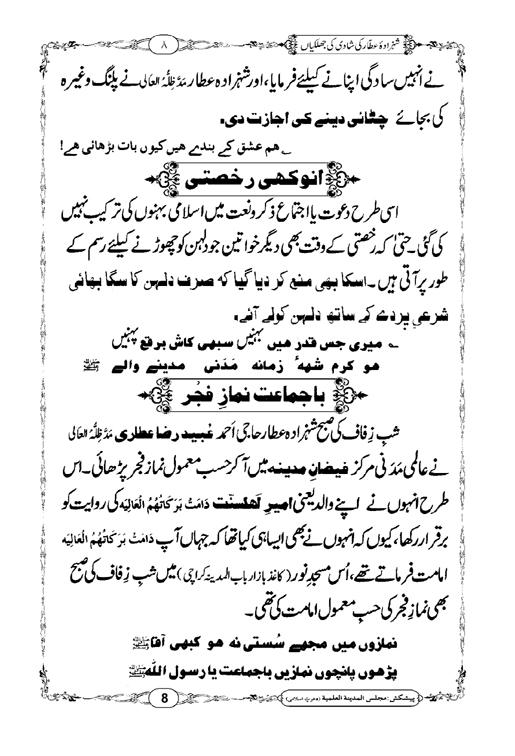 شہزادۂ عطار کی شادی کی جھلکیاں ۸
نے انہیں سادگی اپنانے کیلئے فرمایا، اور شہزادہ عطار مَدَّظِلُّہُ العَالی نے پلنگ وغیرہ
کی بجائے چٹائی دینے کی اجازت دی۔
ہم عشق کے بندے ہیں کیوں بات بڑھائی ہے!
انوکھی رخصتی
اسی طرح دعوت یا اجتماعِ ذکر و نعت میں اسلامی بہنوں کی ترکیب نہیں
کی گئی۔ حتیٰ کہ رخصتی کے وقت بھی دیگر خواتین جو دلہن کو چھوڑنے کیلئے رسم کے
طور پر آتی ہیں۔ اسکا بھی منع کر دیا گیا کہ صرف دلہن کا سگا بھائی
شرعی پردے کے ساتھ دلہن کو لے آئے۔
میری جس قدر ہیں بہنیں سبھی کاش برقع پہنیں
ہو کرم شہہِ زمانہ مَدَنی مدینے والے ﷺ
باجماعت نمازِ فجر
شبِ زِفاف کی صبح شہزادہ عطار حاجی اَحمد عُبید رضا عطاری مَدَّظِلُّہُ العَالی
نے عالمی مَدَنی مرکز فیضانِ مدینہ میں آ کر حسبِ معمول نمازِ فجر پڑھائی۔ اس
طرح انہوں نے اپنے والد یعنی امیرِ اَہلسنّت دَامَتْ بَرَکَاتُہُمُ الْعَالِیَہ کی روایت کو
برقرار رکھا، کیوں کہ انہوں نے بھی ایسا ہی کیا تھا کہ جہاں آپ دَامَتْ بَرَکَاتُہُمُ الْعَالِیَہ
امامت فرماتے تھے، اُس مسجدِ نور (کاغذ بازار باب المدینہ کراچی) میں شبِ زِفاف کی صبح
بھی نمازِ فجر کی حسبِ معمول امامت کی تھی۔
نمازوں میں مجھے سُستی نہ ہو کبھی آقا ﷺ
پڑھوں پانچوں نمازیں باجماعت یا رسول اللہ ﷺ
پیشکش: مجلس المدینۃ العلمیۃ (دعوتِ اسلامی) 8